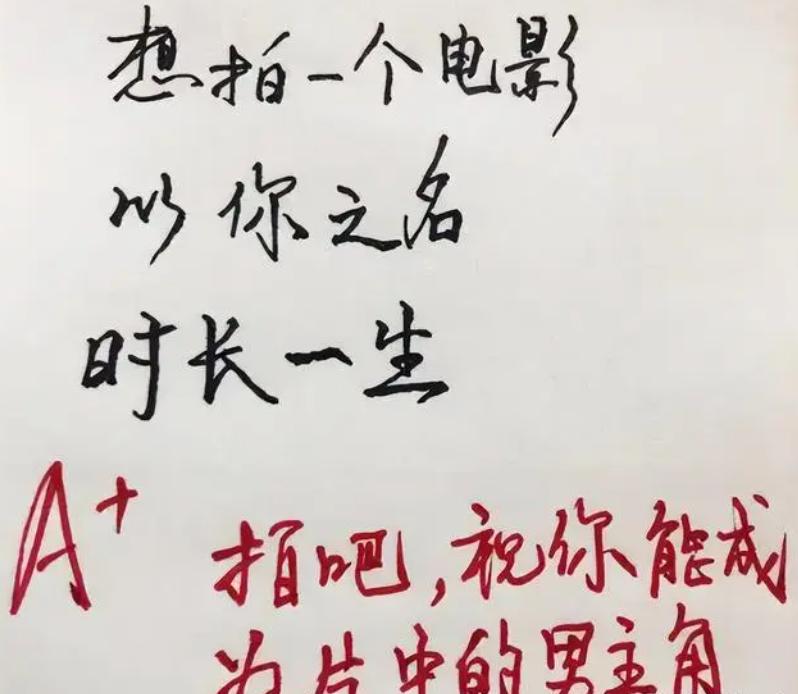 想拍一个电影
以你之名
时长一生
A+
拍吧,祝你能成
为片中的男主角